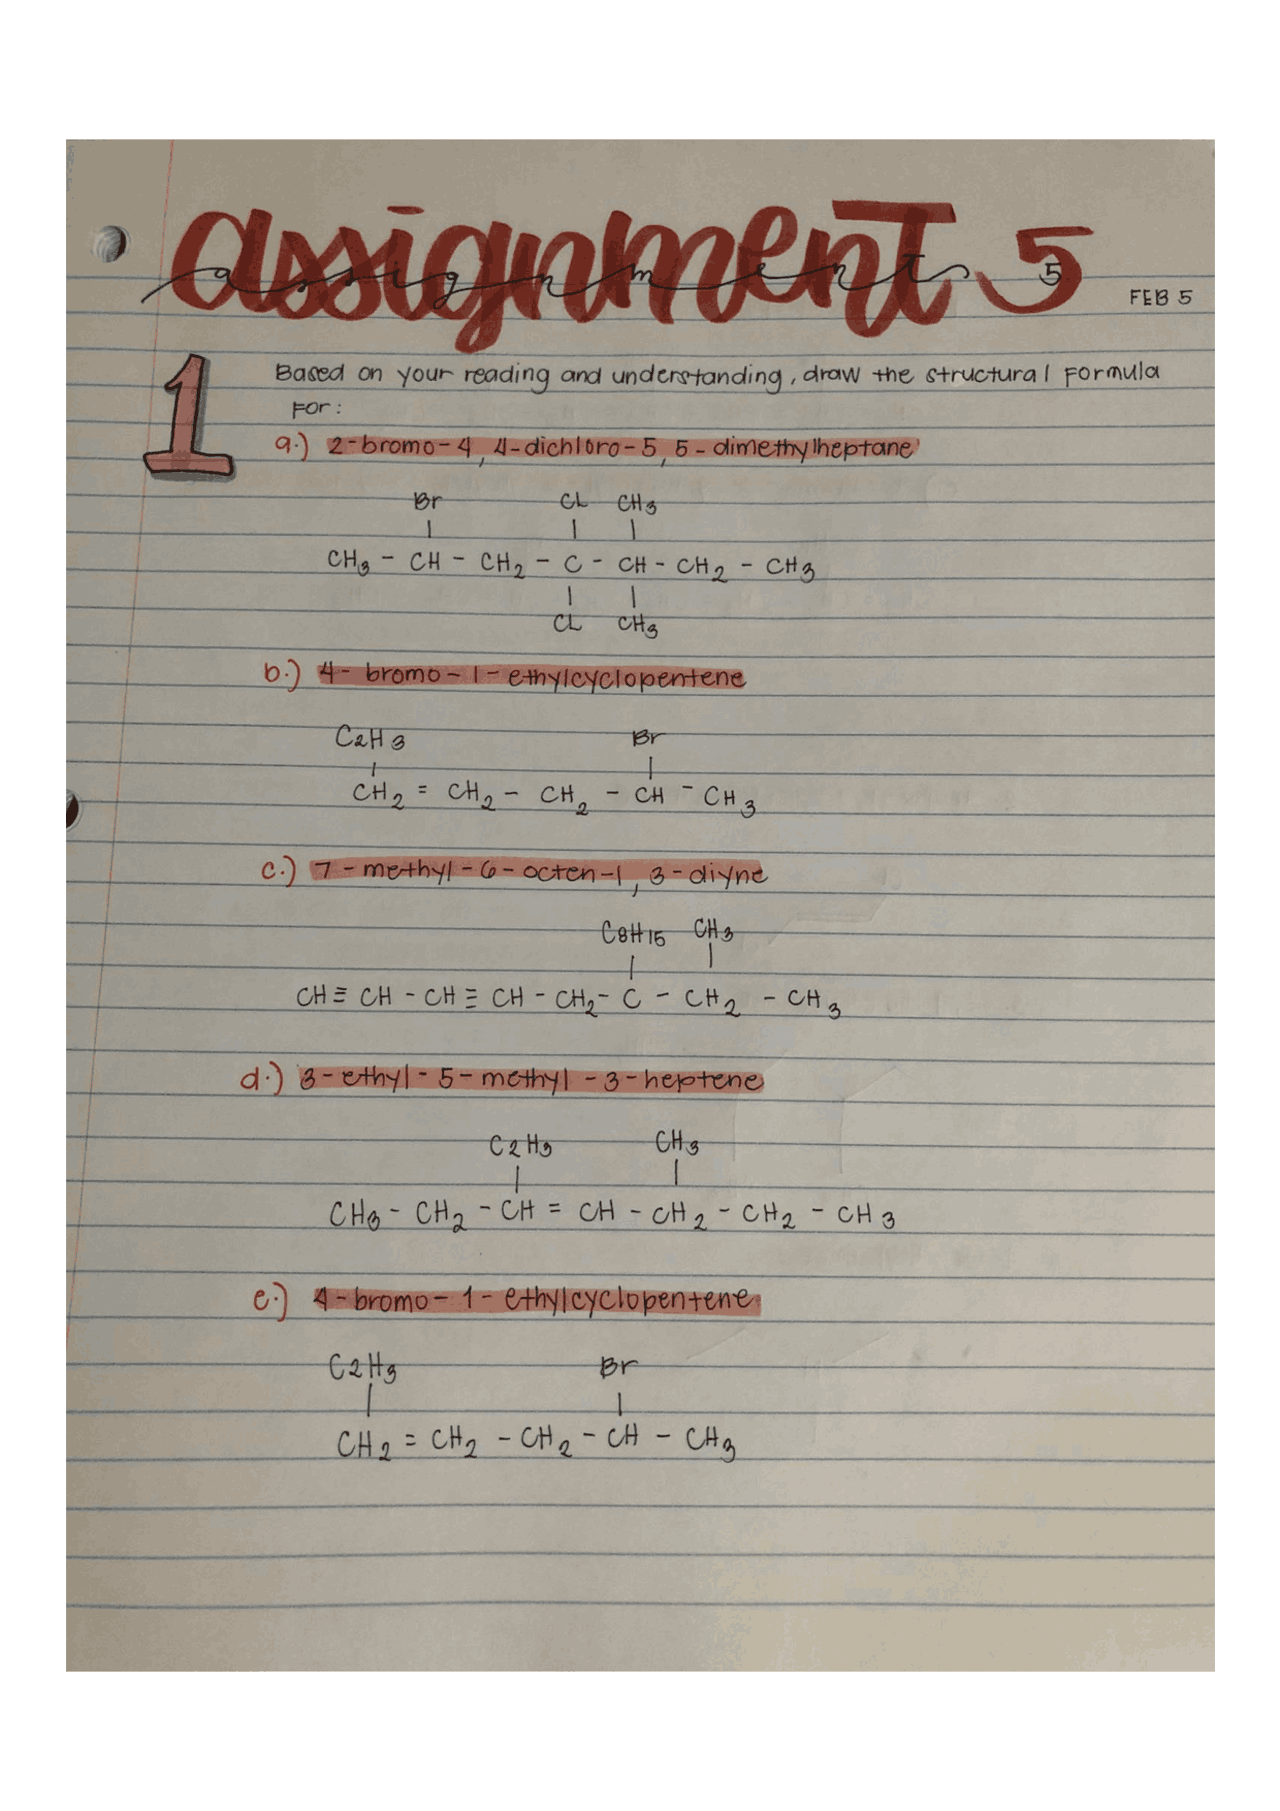 assignment 5
assignment 5
FEB 5
1 Based on your reading and understanding, draw the structural formula
for:
a.) 2-bromo-4,4-dichloro-5,5-dimethylheptane
Br CL CH3
| | |
CH3 - CH - CH2 - C - CH - CH2 - CH3
| |
CL CH3
b.) 4-bromo-1-ethylcyclopentene
C2H3 Br
| |
CH2 = CH2 - CH2 - CH - CH3
c.) 7-methyl-6-octen-1,3-diyne
C8H15 CH3
| |
CH ≡ CH - CH ≡ CH - CH2 - C - CH2 - CH3
d.) 3-ethyl-5-methyl-3-heptene
C2H3 CH3
| |
CH3 - CH2 - CH = CH - CH2 - CH2 - CH3
e.) 4-bromo-1-ethylcyclopentene
C2H3 Br
| |
CH2 = CH2 - CH2 - CH - CH3